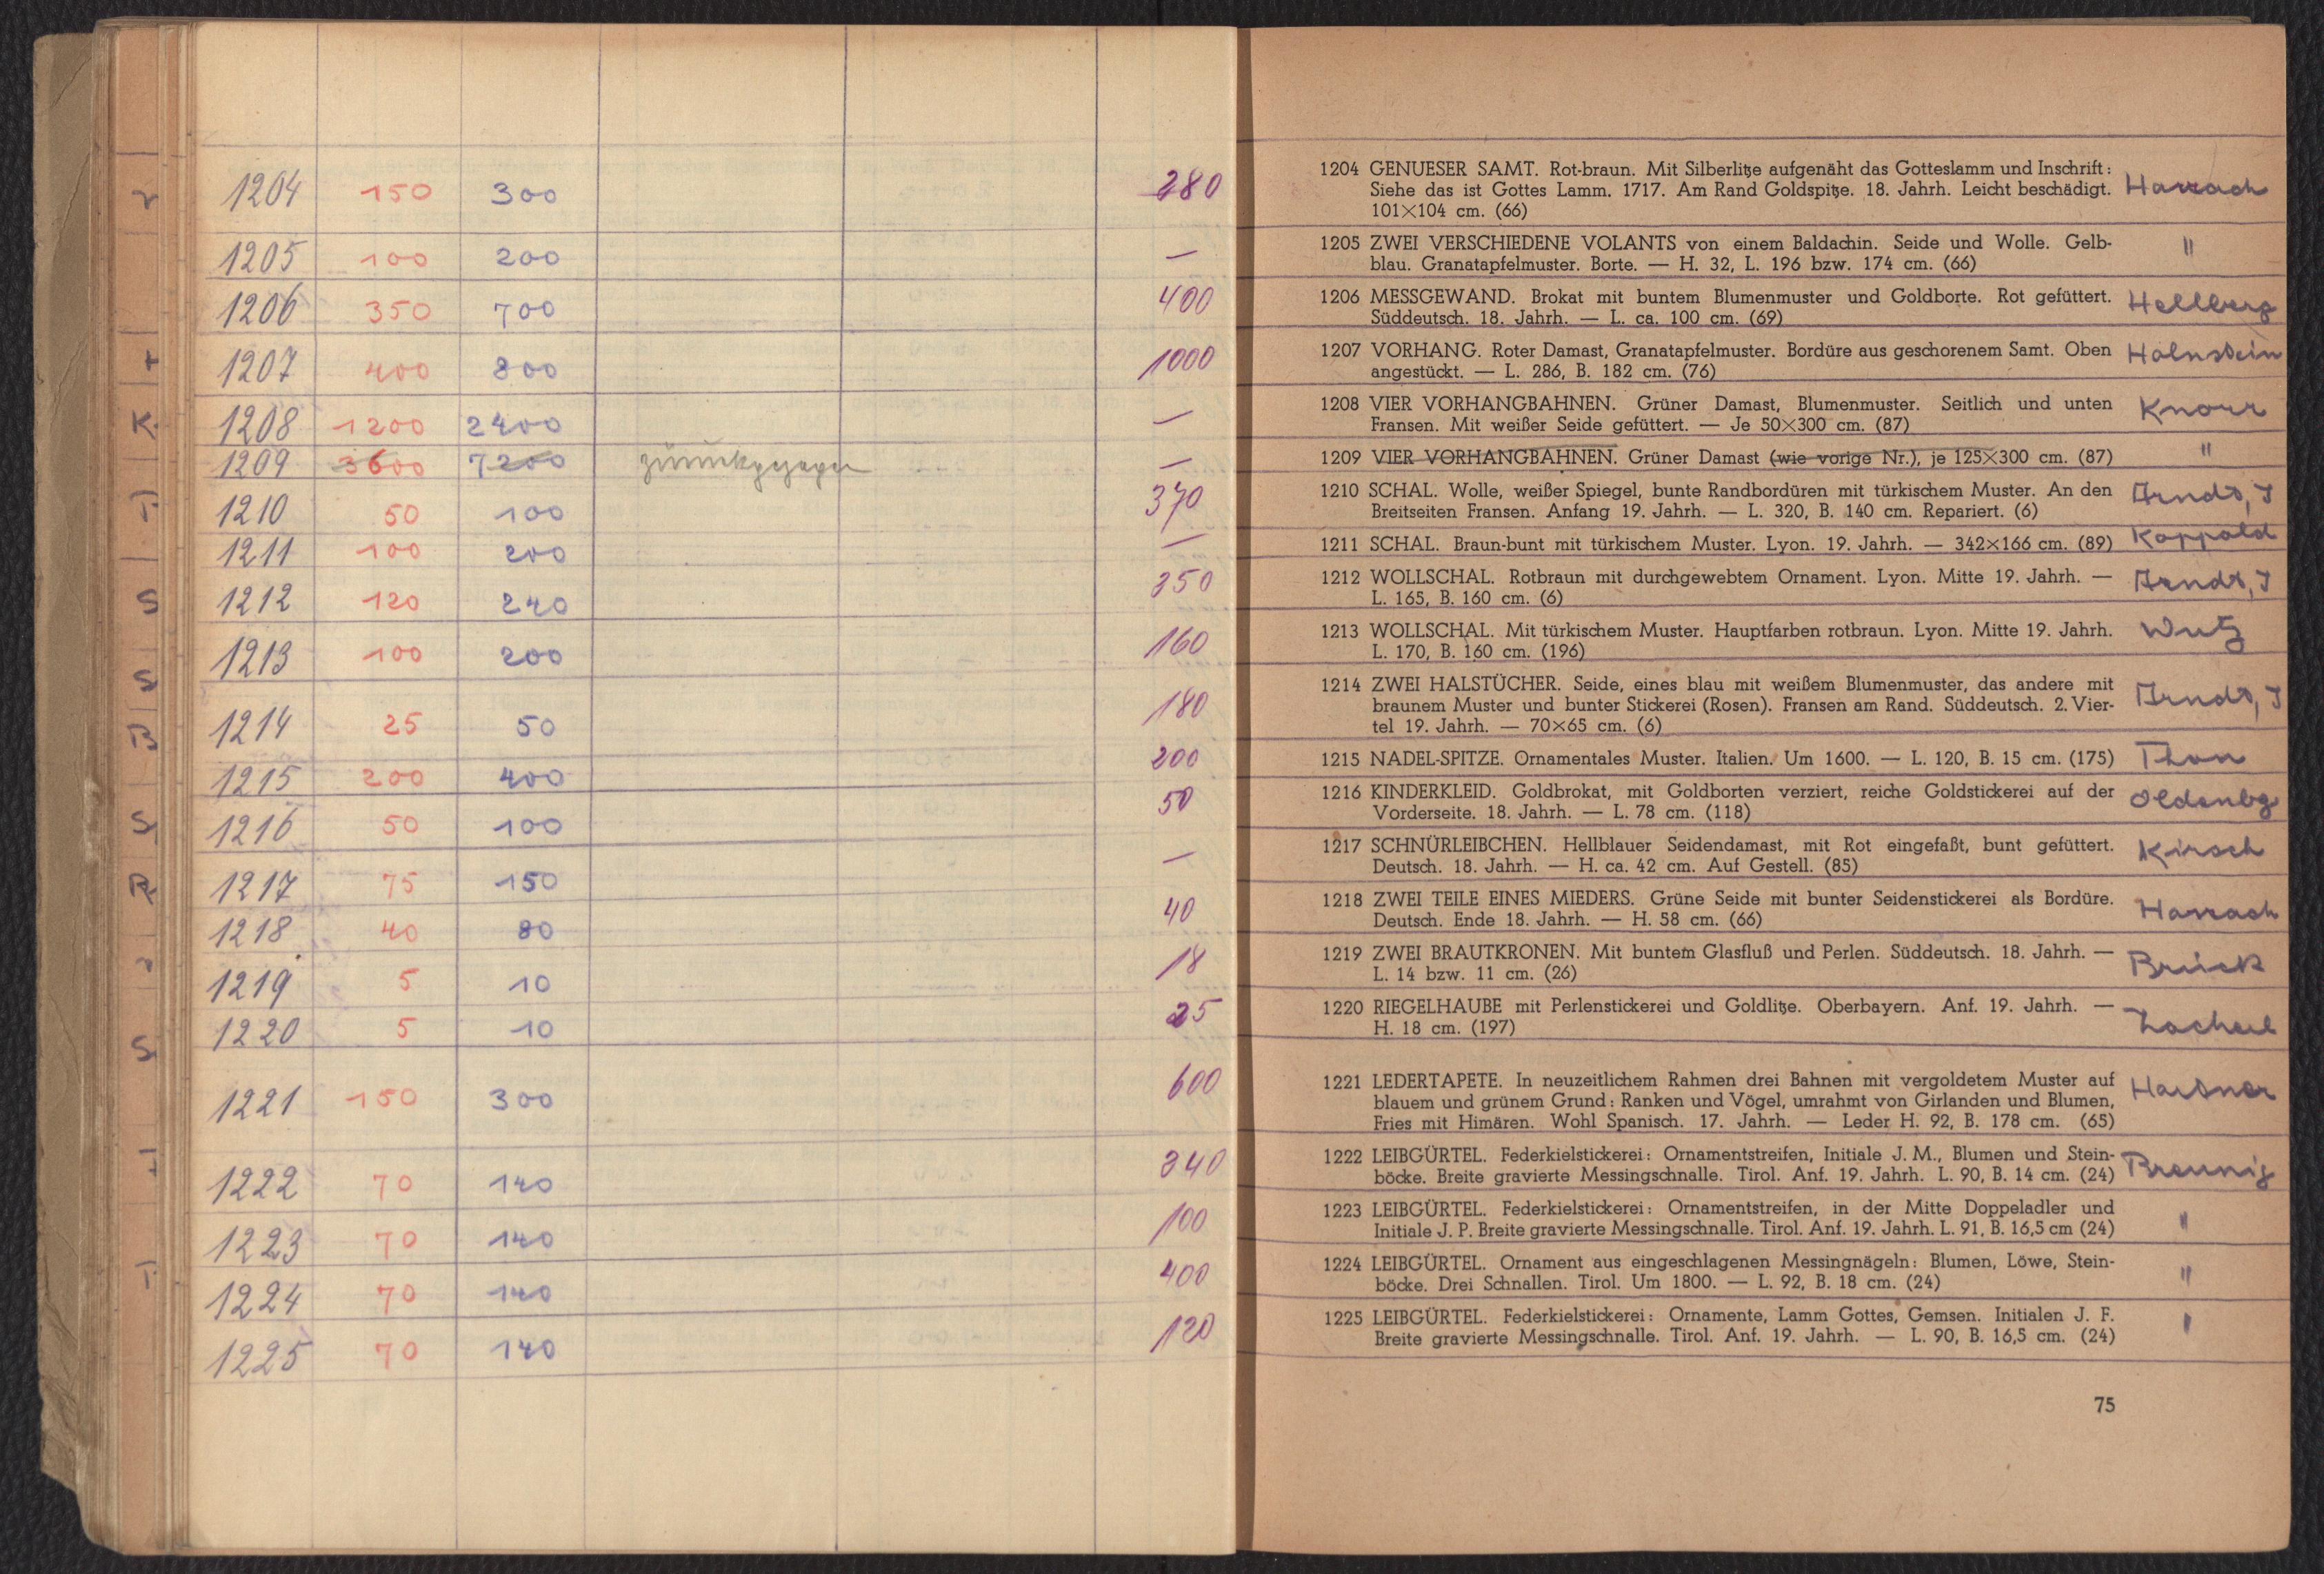 1204 150 300 280
1205 100 200 —
1206 350 700 400
1207 400 800 1000
1208 1200 2400 —
1209 3600 7200 zurückgezogen —
1210 50 100 370
1211 100 200 —
1212 120 240 350
1213 100 200 160
1214 25 50 180
1215 200 400 200
1216 50 100 50
1217 75 150 —
1218 40 80 40
1219 5 10 18
1220 5 10 25
1221 150 300 600
1222 70 140 340
1223 70 140 100
1224 70 140 400
1225 70 140 120
1204 GENUESER SAMT. Rot-braun. Mit Silberlitze aufgenäht das Gotteslamm und Inschrift:
Siehe das ist Gottes Lamm. 1717. Am Rand Goldspitze. 18. Jahrh. Leicht beschädigt. Harrach
101×104 cm. (66)
1205 ZWEI VERSCHIEDENE VOLANTS von einem Baldachin. Seide und Wolle. Gelb- "
blau. Granatapfelmuster. Borte. — H. 32, L. 196 bzw. 174 cm. (66)
1206 MESSGEWAND. Brokat mit buntem Blumenmuster und Goldborte. Rot gefüttert. Hellberg
Süddeutsch. 18. Jahrh. — L. ca. 100 cm. (69)
1207 VORHANG. Roter Damast, Granatapfelmuster. Bordüre aus geschorenem Samt. Oben Holnstein
angestückt. — L. 286, B. 182 cm. (76)
1208 VIER VORHANGBAHNEN. Grüner Damast, Blumenmuster. Seitlich und unten Knorr
Fransen. Mit weißer Seide gefüttert. — Je 50×300 cm. (87)
1209 VIER VORHANGBAHNEN. Grüner Damast (wie vorige Nr.), je 125×300 cm. (87) "
1210 SCHAL. Wolle, weißer Spiegel, bunte Randbordüren mit türkischem Muster. An den Arndt, J
Breitseiten Fransen. Anfang 19. Jahrh. — L. 320, B. 140 cm. Repariert. (6)
1211 SCHAL. Braun-bunt mit türkischem Muster. Lyon. 19. Jahrh. — 342×166 cm. (89) Koppold
1212 WOLLSCHAL. Rotbraun mit durchgewebtem Ornament. Lyon. Mitte 19. Jahrh. — Arndt, J
L. 165, B. 160 cm. (6)
1213 WOLLSCHAL. Mit türkischem Muster. Hauptfarben rotbraun. Lyon. Mitte 19. Jahrh. Wutz
L. 170, B. 160 cm. (196)
1214 ZWEI HALSTÜCHER. Seide, eines blau mit weißem Blumenmuster, das andere mit Arndt, J
braunem Muster und bunter Stickerei (Rosen). Fransen am Rand. Süddeutsch. 2. Vier-
tel 19. Jahrh. — 70×65 cm. (6)
1215 NADEL-SPITZE. Ornamentales Muster. Italien. Um 1600. — L. 120, B. 15 cm. (175) Thon
1216 KINDERKLEID. Goldbrokat, mit Goldborten verziert, reiche Goldstickerei auf der Oldenbg
Vorderseite. 18. Jahrh. — L. 78 cm. (118)
1217 SCHNÜRLEIBCHEN. Hellblauer Seidendamast, mit Rot eingefaßt, bunt gefüttert. Kirsch
Deutsch. 18. Jahrh. — H. ca. 42 cm. Auf Gestell. (85)
1218 ZWEI TEILE EINES MIEDERS. Grüne Seide mit bunter Seidenstickerei als Bordüre. Harrach
Deutsch. Ende 18. Jahrh. — H. 58 cm. (66)
1219 ZWEI BRAUTKRONEN. Mit buntem Glasfluß und Perlen. Süddeutsch. 18. Jahrh. — Brück
L. 14 bzw. 11 cm. (26)
1220 RIEGELHAUBE mit Perlenstickerei und Goldlitze. Oberbayern. Anf. 19. Jahrh. — Zacherl
H. 18 cm. (197)
1221 LEDERTAPETE. In neuzeitlichem Rahmen drei Bahnen mit vergoldetem Muster auf
blauem und grünem Grund: Ranken und Vögel, umrahmt von Girlanden und Blumen,
Fries mit Himären. Wohl Spanisch. 17. Jahrh. — Leder H. 92, B. 178 cm. (65)
1222 LEIBGÜRTEL. Federkielstickerei: Ornamentstreifen, Initiale J. M., Blumen und Stein- Brennig
böcke. Breite gravierte Messingschnalle. Tirol. Anf. 19. Jahrh. L. 90, B. 14 cm. (24)
1223 LEIBGÜRTEL. Federkielstickerei: Ornamentstreifen, in der Mitte Doppeladler und "
Initiale J. P. Breite gravierte Messingschnalle. Tirol. Anf. 19. Jahrh. L. 91, B. 16,5 cm (24)
1224 LEIBGÜRTEL. Ornament aus eingeschlagenen Messingnägeln: Blumen, Löwe, Stein- "
böcke. Drei Schnallen. Tirol. Um 1800. — L. 92, B. 18 cm. (24)
1225 LEIBGÜRTEL. Federkielstickerei: Ornamente, Lamm Gottes, Gemsen. Initialen J. F. "
Breite gravierte Messingschnalle. Tirol. Anf. 19. Jahrh. — L. 90, B. 16,5 cm. (24)
75